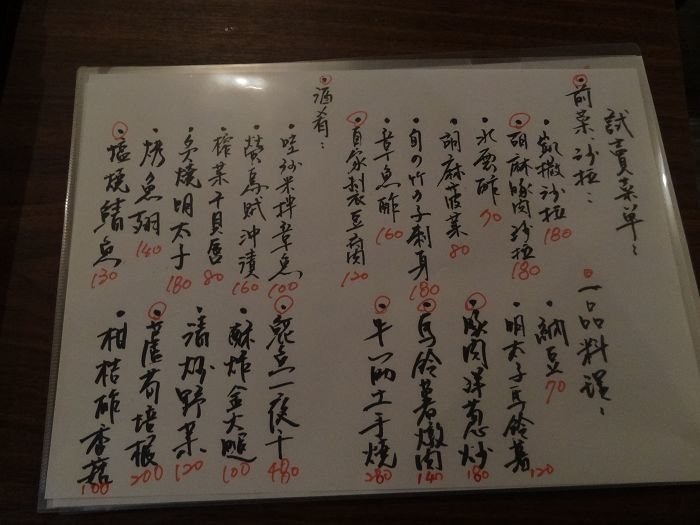 試賣菜單：
前菜、沙拉：
・凱撒沙拉 180
・胡麻豚肉沙拉 180
・水雲酢 70
・胡麻菠菜 80
・旬の竹の子刺身 180
・章魚酢 160
・自家製豆腐 120
・酒肴：
・哇沙米拌章魚 100
・螢烏賊沖漬 160
・榨菜干貝唇 80
・炙燒明太子 180
・烤魚翅 140
・塩燒鯖魚 130
一品料理：
・納豆 70
・明太子馬鈴薯 120
・豚肉洋蔥炒 180
・馬鈴薯燉肉 140
・牛筋土手燒 280
・一夜干 480
・酥炸金大腿 100
・清炒野菜 120
・蘆荀培根 200
・柑桔酢香菇 100